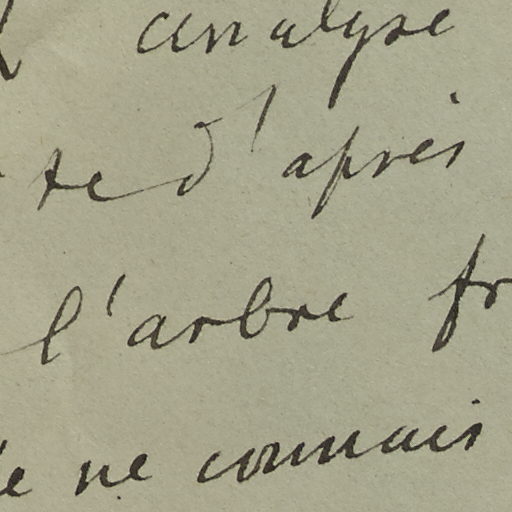 analyse
te d'après
l'arbre fr
ne connais